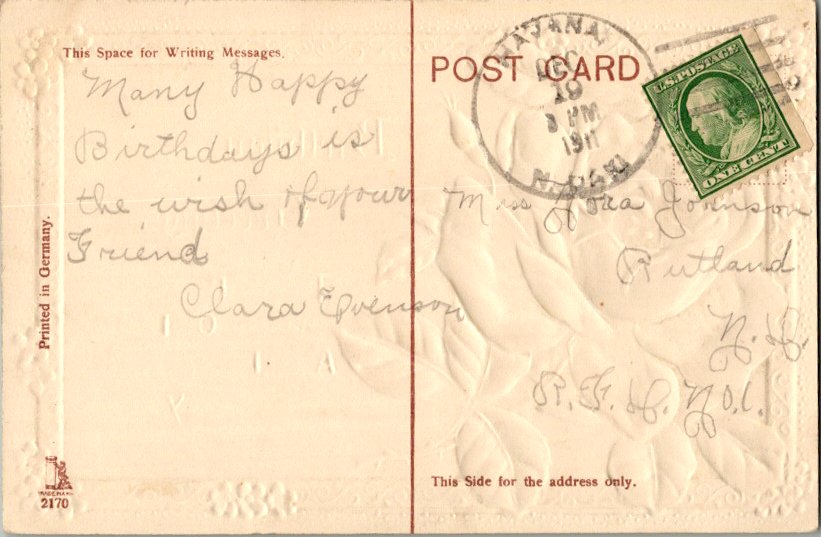 This Space for Writing Messages.
Many Happy
Birthdays is
the wish of your
Friend
Clara Evenson
Printed in Germany.
2170
POST CARD
HAVANA,
DEC
19
3 PM
1911
N. DAK.
U.S. POSTAGE
ONE CENT
Miss Nora Johnson
Rutland
N. D.
R. F. D. No 1.
This Side for the address only.